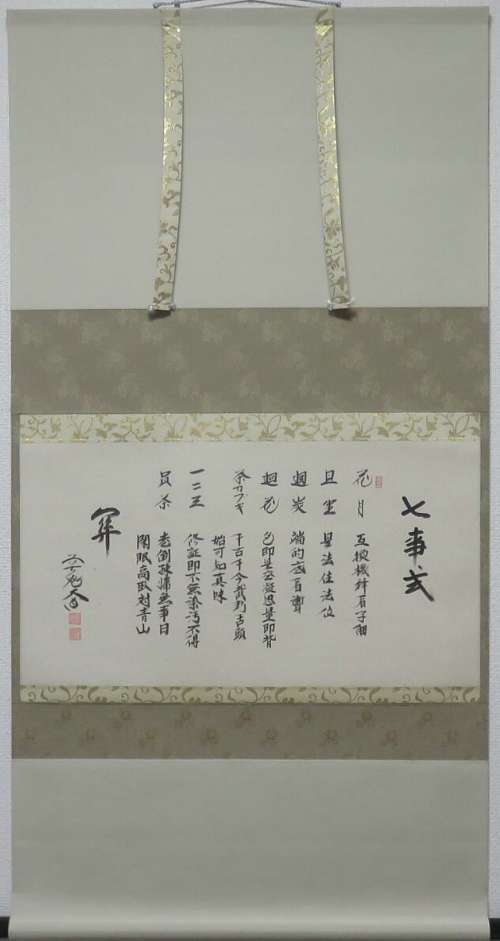 七事式
花月 互換機鋒看子細
且坐 是法住法位
廻炭 端的底看聻
廻花 色即是空凝思量即背
茶カフキ 千古千今截断舌頭
始可知真味
一二三 修証即不無染汚不得
員茶 老倒疎慵無事日
閑眠高臥対青山